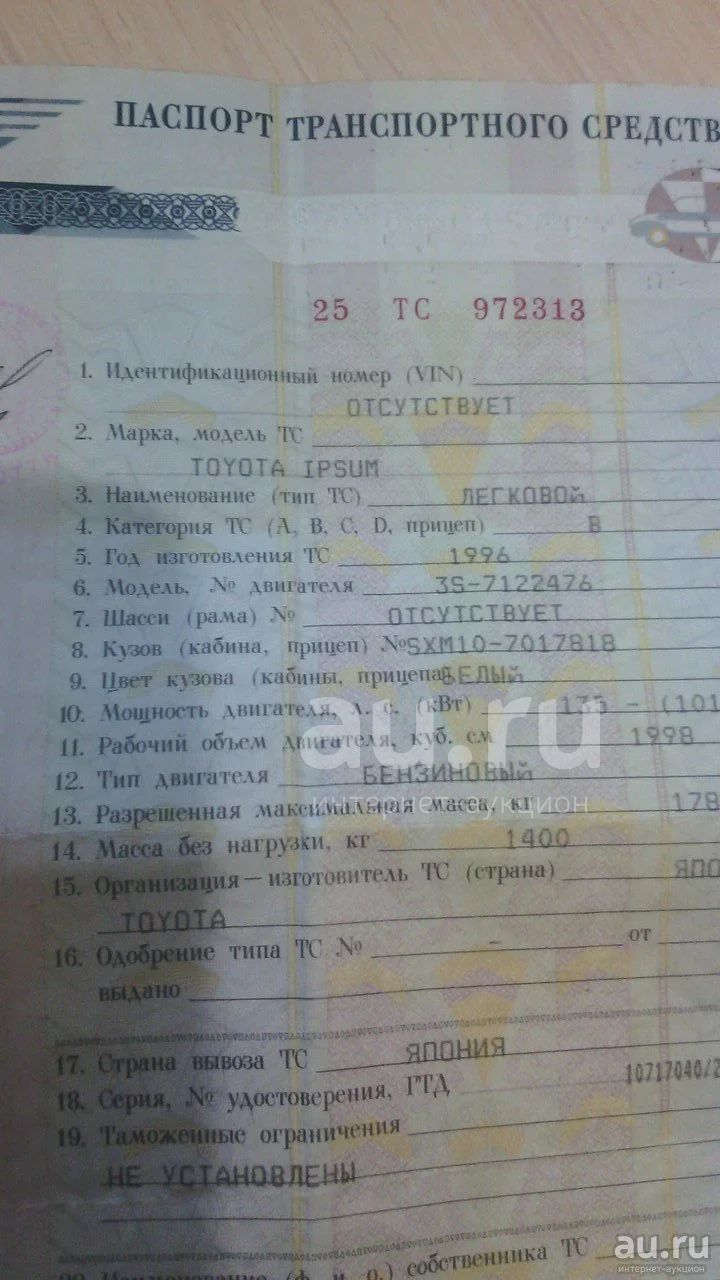 ПАСПОРТ ТРАНСПОРТНОГО СРЕДСТВ
25 ТС 972313
1. Идентификационный номер (VIN)
ОТСУТСТВУЕТ
2. Марка, модель ТС
TOYOTA IPSUM
3. Наименование (тип ТС) ЛЕГКОВОЙ
4. Категория ТС (А, В, С, D, прицеп) В
5. Год изготовления ТС 1996
6. Модель, № двигателя 3S-7122476
7. Шасси (рама) № ОТСУТСТВУЕТ
8. Кузов (кабина, прицеп) № SXM10-7017818
9. Цвет кузова (кабины, прицепа) БЕЛЫЙ
10. Мощность двигателя, л. с. (кВт) 135 - (101
11. Рабочий объем двигателя, куб. см 1998
12. Тип двигателя БЕНЗИНОВЫЙ
13. Разрешенная максимальная масса, кг 178
14. Масса без нагрузки, кг 1400
15. Организация — изготовитель ТС (страна) ЯПО
TOYOTA
16. Одобрение типа ТС № - от
выдано
17. Страна вывоза ТС ЯПОНИЯ
18. Серия, № удостоверения, ГТД 10717040/2
19. Таможенные ограничения
НЕ УСТАНОВЛЕНЫ
(ф. и. о.) собственника ТС
au.ru
интернет-аукцион
au.ru
интернет-аукцион